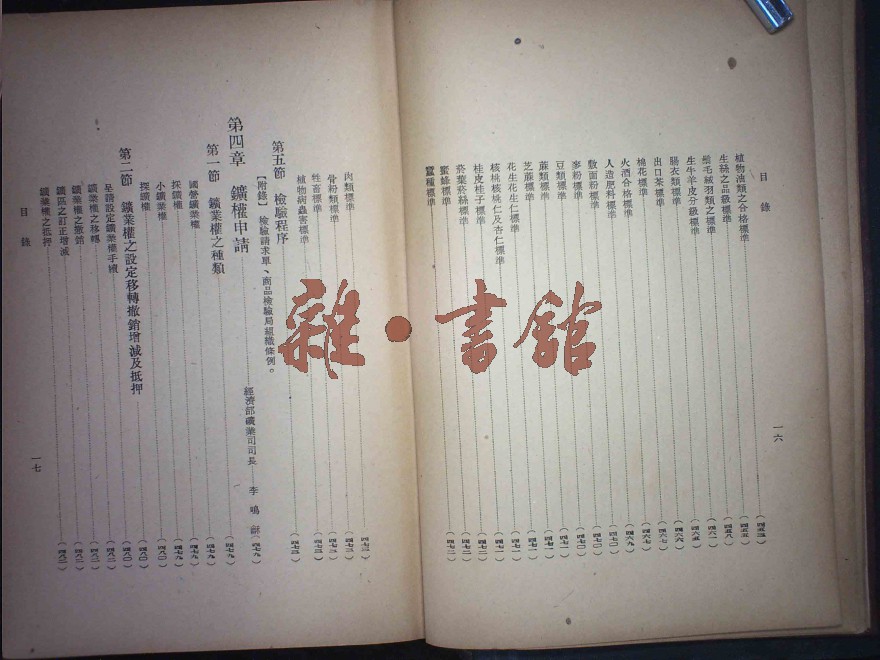 目錄
植物油類之合格標準（四五三）
生絲之品級標準（四五五）
毛絨羽類之標準（四五八）
生牛羊皮分級標準（四六一）
腸衣類標準（四六五）
出口茶標準（四六六）
棉花標準（四六七）
火酒合格標準（四六七）
人造肥料標準（四六九）
麩面粉標準（四七〇）
麥粉標準（四七〇）
豆類標準（四七〇）
蔴類標準（四七一）
芝蔴標準（四七一）
花生花生仁標準（四七一）
核桃核桃仁及杏仁標準（四七一）
桂皮桂子標準（四七二）
菸葉菸絲標準（四七二）
蜜蜂標準（四七二）
蠶種標準（四七二）
一六
肉類標準（四七三）
骨粉類標準（四七三）
牲畜標準（四七三）
植物病蟲害標準（四七三）
第五節 檢驗程序
【附錄】檢驗請求單、商品檢驗局組織條例。
第四章 鑛權申請 經濟部礦業司司長 李鳴（四七九）
第一節 鑛業權之種類（四七九）
國營鑛業權（四七九）
採鑛權（四七九）
小鑛業權（四八〇）
探鑛權（四八〇）
第二節 鑛業權之設定移轉撤銷增減及抵押（四八〇）
呈請設定鑛業權手續（四八一）
鑛業權之移轉（四八二）
鑛業權之撤銷（四八二）
鑛區之訂正增減（四八二）
鑛業權之抵押（四八二）
目錄
一七
雜·書館